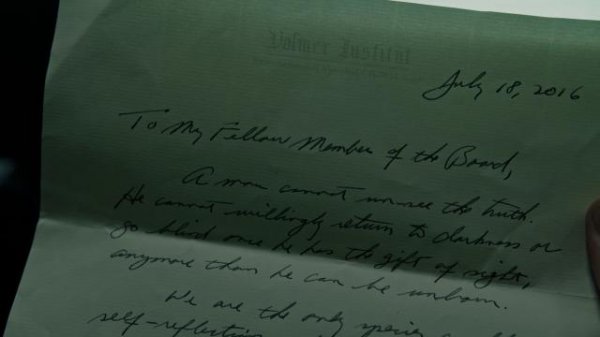 Volmer Institut
July 18, 2016
To My Fellow Member of the Board,
A man cannot unsee the truth.
He cannot willingly return to darkness or
go blind once he has the gift of sight,
anymore than he can be unborn.
We are the only species
self-reflection